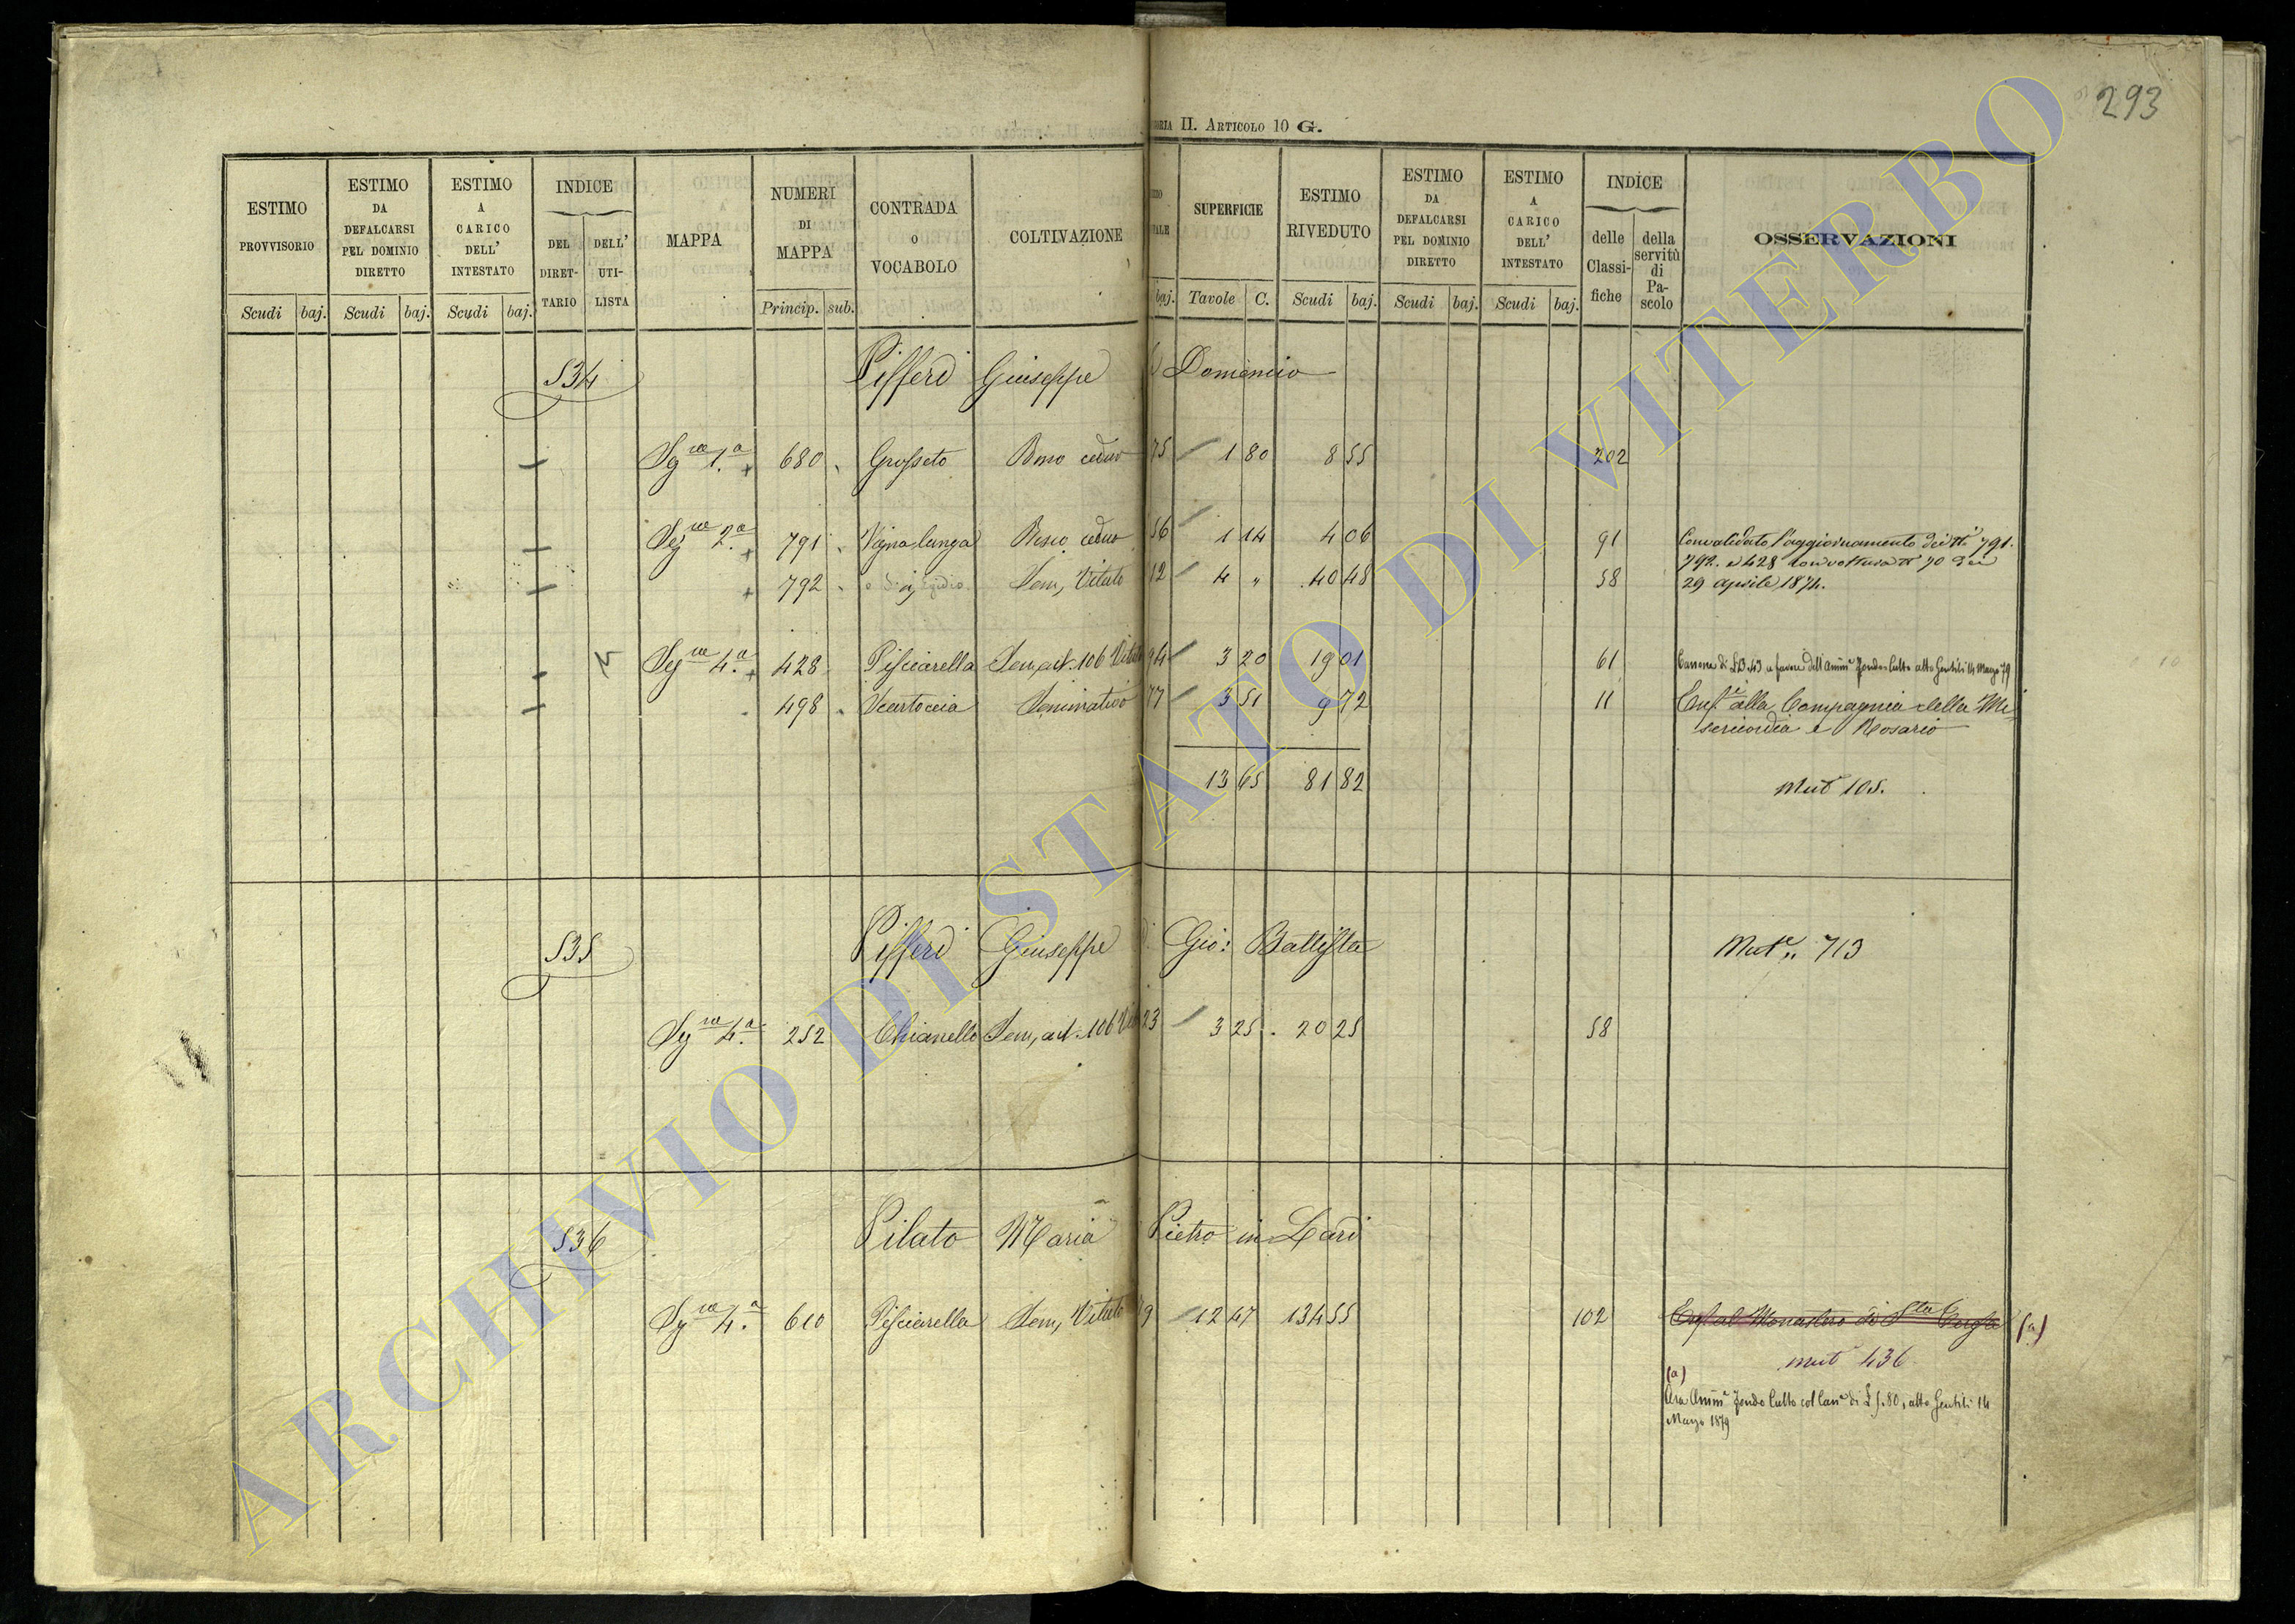 293
II. ARTICOLO 10 G.
ESTIMO PROVVISORIO
ESTIMO DA DEFALCARSI PEL DOMINIO DIRETTO
ESTIMO A CARICO DELL' INTESTATO
INDICE
DEL DIRETTARIO
DELL' UTILISTA
MAPPA
NUMERI DI MAPPA
CONTRADA O VOCABOLO
COLTIVAZIONE
SUPERFICIE
ESTIMO RIVEDUTO
ESTIMO DA DEFALCARSI PEL DOMINIO DIRETTO
ESTIMO A CARICO DELL' INTESTATO
INDICE
delle Classifiche
della servitù di Pascolo
OSSERVAZIONI
Scudi baj. Scudi baj. Scudi baj. Princip. sub. baj. Tavole C. Scudi baj. Scudi baj. Scudi baj.
534 Pifferi Giuseppe Domenico
Sg.ne 1.a + 680 Grosseto Bosco ceduo 75 1 80 8 55 202
Seg.ne 2.a + 791 Vigna lunga Bosco ceduo 56 1 14 4 06 91 Convalidato l'aggiornamento dei N.i 791.
+ 792 Sem, Vitato 12 4 " 40 48 58 792. e 428 con voltura N 70 del
29 Aprile 1874.
Seg.ne 4.a + 428 Pisciarella Sem, art. 106 Vitato 94 3 20 19 01 61 Canone di £ 3.43 a favore dell'Amm.e Fondo Culto atto Gentili 14 Marzo 79
498 Seminativo 77 3 51 9 72 11 Enf. alla Compagnia della Mi-
sericordia e Rosario
13 65 81 82
Mut. 105.
535 Pifferi Giuseppe di Gio: Battista Mut.e 713
Seg.ne 4.a 252 Chianello Sem, art. 106 23 3 25 20 25 58
536 Pilato Maria Pietro in Lardi
Sg.ne 4.a 610 Pisciarella Sem, Vitato 9 12 47 134 55 102 Enf. al Monastero di S.ta (a)
mut 436
(a)
Ora Amm.e Fondo Culto col Can.e di £ 5.80, atto Gentili 14
Marzo 1879
ARCHIVIO DI STATO DI VITERBO